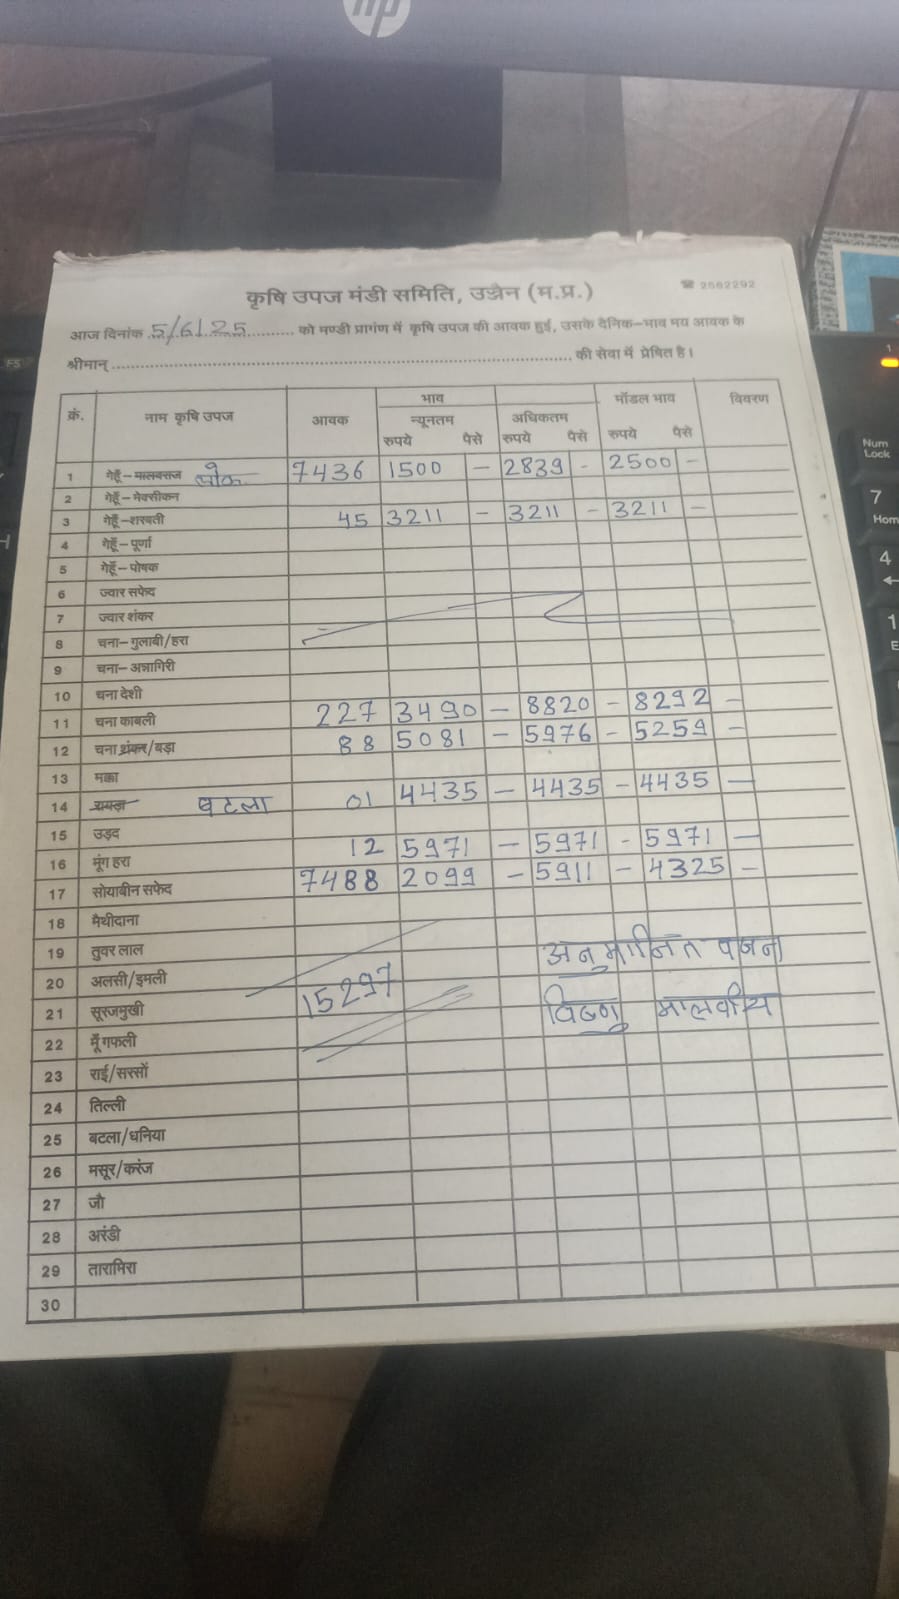 hp
कृषि उपज मंडी समिति, उज्जैन (म.प्र.) ☎ 2562292
आज दिनांक 5/6/25 को मण्डी प्रागंण में कृषि उपज की आवक हुई, उसके दैनिक–भाव मय आवक के
श्रीमान् की सेवा में प्रेषित है।
क्रं. नाम कृषि उपज आवक भाव न्यूनतम रुपये पैसे अधिकतम रुपये पैसे मॉडल भाव रुपये पैसे विवरण
1 गेहूँ–मालवराज लोक 7436 1500 – 2839 – 2500 –
2 गेहूँ–मेक्सीकन
3 गेहूँ–शरबती 45 3211 – 3211 – 3211 –
4 गेहूँ–पूर्णा
5 गेहूँ–पोषक
6 ज्वार सफेद
7 ज्वार शंकर
8 चना–गुलाबी/हरा
9 चना–अन्नागिरी
10 चना देशी
11 चना काबली 227 3490 – 8820 – 8292 –
12 चना शंकर/बड़ा 88 5081 – 5976 – 5259 –
13 मक्का
14 बटला 01 4435 – 4435 – 4435 –
15 उड़द
16 मूंग हरा 12 5971 – 5971 – 5971 –
17 सोयाबीन सफेद 7488 2099 – 5911 – 4325 –
18 मैथीदाना
19 तुवर लाल अनुमानित वजन
20 अलसी/इमली 15297
21 सूरजमुखी विष्णु मालवीय
22 मूँगफली
23 राई/सरसों
24 तिल्ली
25 बटला/धनिया
26 मसूर/करंज
27 जौ
28 अरंडी
29 तारामिरा
30
F5
Num
Lock
7
Hom
4
1
E
H